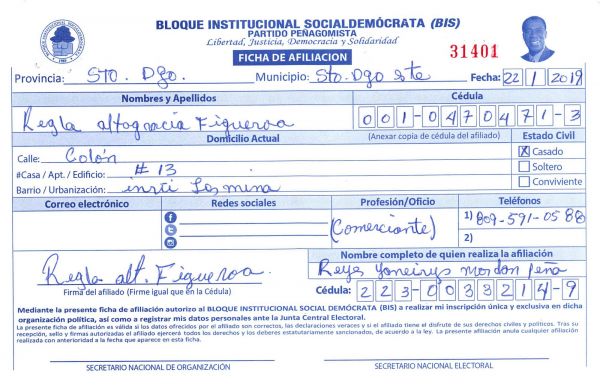 BLOQUE INSTITUCIONAL SOCIALDEMÓCRATA (BIS)
PARTIDO PEÑAGOMISTA
Libertad, Justicia, Democracia y Solidaridad
FICHA DE AFILIACION
31401
Provincia: Sto. Dgo. Municipio: Sto. Dgo Este Fecha: 22/1/2019
Nombres y Apellidos Cédula
Regla altagracia Figueroa 001-0470471-3
Domicilio Actual (Anexar copia de cédula del afiliado) Estado Civil
Calle: Colón X Casado
#Casa / Apt. / Edificio: #13 Soltero
Barrio / Urbanización: Los mina Conviviente
Correo electrónico Redes sociales Profesión/Oficio Teléfonos
(Comerciante) 1) 809-591-0588
2)
Regla alt. Figueroa. Nombre completo de quien realiza la afiliación
Reyes Yoneirys mordan Peña
Firma del afiliado (Firme igual que en la Cédula) Cédula: 223-0033214-9
Mediante la presente ficha de afiliación autorizo al BLOQUE INSTITUCIONAL SOCIAL DEMÓCRATA (BIS) a realizar mi inscripción única y exclusiva en dicha
organización política, así como a registrar mis datos personales ante la Junta Central Electoral.
La presente ficha de afiliación es válida si los datos ofrecidos por el afiliado son correctos, las declaraciones veraces y si el afiliado tiene el disfrute de sus derechos civiles y políticos. Tras su
recepción, sello y firmas autorizadas el afiliado ejercerá todos los derechos y los deberes estatutariamente sancionados, de acuerdo a la ley. La presente afiliación anula cualquier afiliación
realizada con anterioridad a la fecha que aparece en esta ficha.
SECRETARIO NACIONAL DE ORGANIZACIÓN SECRETARIO NACIONAL ELECTORAL